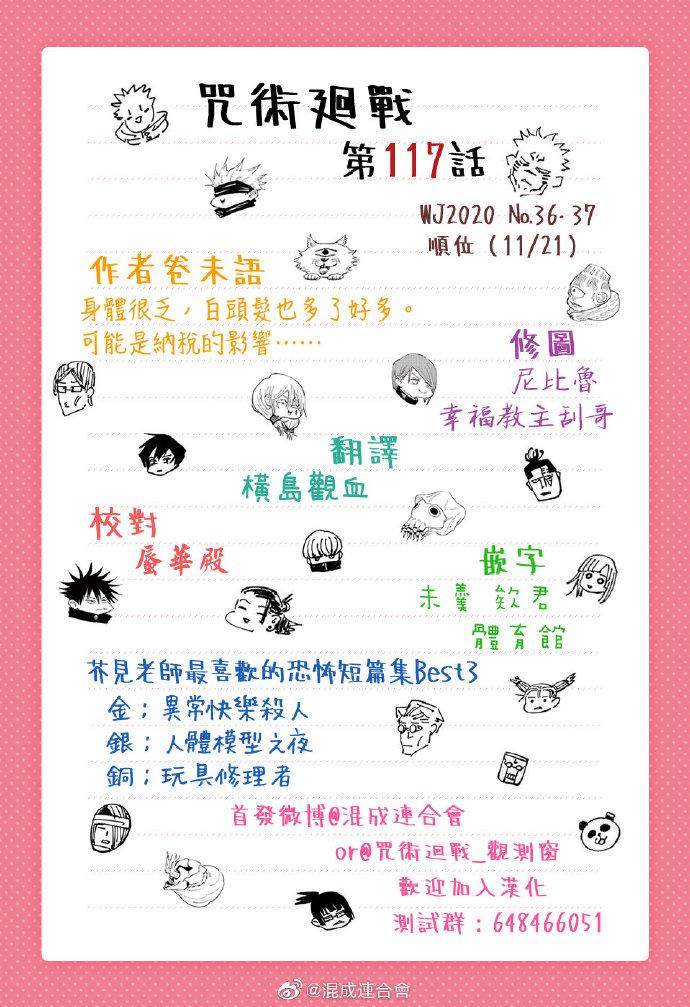 咒術廻戰
第117話
WJ2020 No.36·37
順位（11/21）
作者卷末語
身體很乏，白頭髮也多了好多。
可能是納稅的影響……
修圖
尼比魯
幸福教主刮哥
翻譯
橫島觀血
校對
蜃華殿
嵌字
未羹 欸君
體育館
芥見老師最喜歡的恐怖短篇集Best3
金；異常快樂殺人
銀；人體模型之夜
銅；玩具修理者
首發微博@混成連合會
or@咒術迴戰_觀測窗
歡迎加入漢化
測試群：648466051
@混成連合會